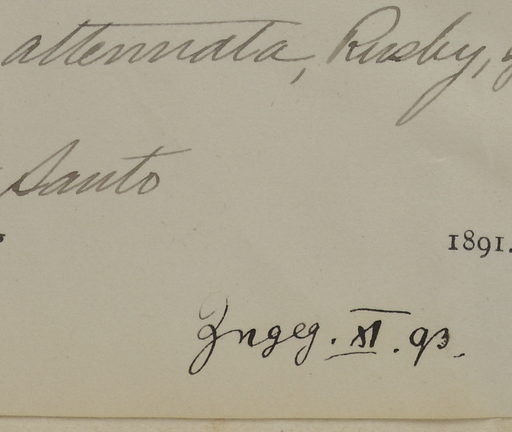 attenuata, Rusby,
Santo
1891.
Zngeg. XI. 93.